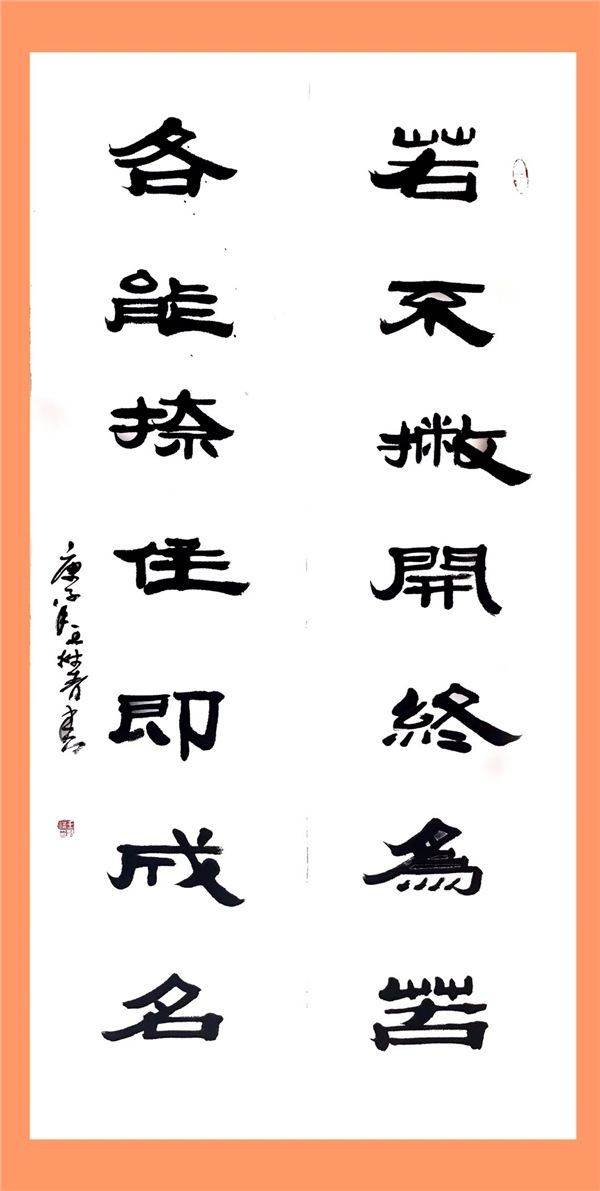 若不撇開終為苦
各能捺住即成名
庚子
書